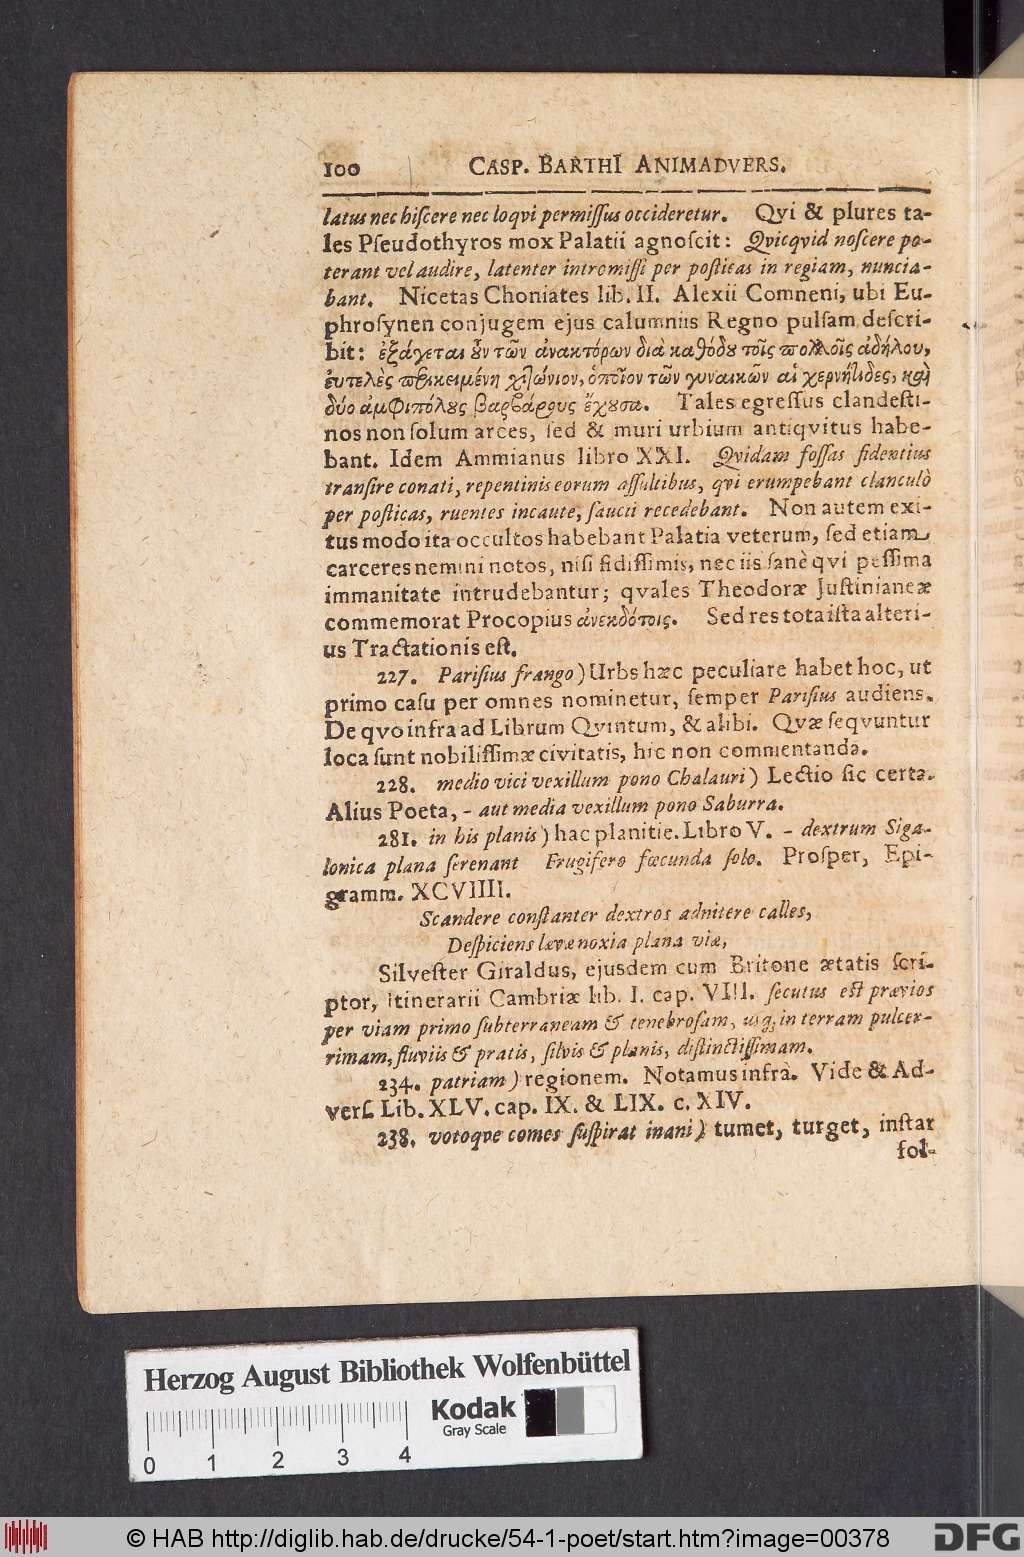 100 CASP. BARTHI ANIMADVERS.
latus nec hiſcere nec loqvi permiſſus occideretur. Qvi & plures ta-
les Pſeudothyros mox Palatii agnoſcit: Qvicqvid noſcere po-
terant vel audire, latenter intromiſſi per poſticas in regiam, nuncia-
bant. Nicetas Choniates lib. II. Alexii Comneni, ubi Eu-
phroſynen conjugem ejus calumniis Regno pulſam deſcri-
bit: ἐξάγεται ȣ̓͂ν τῶν ἀνακτόρων διὰ καθόδȣ τοῖς πολλοῖς ἀδήλου,
ἐυτελὲς περικειμένη χιτώνιον, ὁποῖον τῶν γυναικῶν αἱ χερνήτιδες, καὶ
δύο ἀμφιπόλȣς βαρβάρȣς ἔχȣσα. Tales egreſſus clandeſti-
nos non ſolum arces, ſed & muri urbium antiqvitus habe-
bant. Idem Ammianus libro XXI. Qvidam foſſas fidentius
tranſire conati, repentinis eorum aſſultibus, qvi erumpebant clanculò
per poſticas, ruentes incaute, ſaucii recedebant. Non autem exi-
tus modo ita occultos habebant Palatia veterum, ſed etiam
carceres nemini notos, niſi fidiſſimis, nec iis ſanè qvi peſſima
immanitate intrudebantur; qvales Theodoræ Juſtinianeæ
commemorat Procopius ἀνεκδότοις. Sed res tota iſta alteri-
us Tractationis eſt.
227. Pariſius frango) Urbs hæc peculiare habet hoc, ut
primo caſu per omnes nominetur, ſemper Pariſius audiens.
De qvo infra ad Librum Qvintum, & alibi. Qvæ ſeqvuntur
loca ſunt nobiliſſimæ civitatis, hic non commentanda.
228. medio vici vexillum pono Chalauri) Lectio ſic certa.
Alius Poeta, - aut media vexillum pono Saburra.
281. in his planis) hac planitie. Libro V. - dextrum Siga-
lonica plana ſerenant Frugifero fœcunda ſolo. Proſper, Epi-
gramm. XCVIIII.
Scandere conſtanter dextros adnitere calles,
Deſpiciens lævæ noxia plana viæ,
Silveſter Giraldus, ejusdem cum Britone ætatis ſcri-
ptor, Itinerarii Cambriæ lib. I. cap. VIII. ſecutus eſt prævios
per viam primo ſubterraneam & tenebroſam, usq; in terram pulcer-
rimam, fluviis & pratis, ſilvis & planis, diſtinctiſſimam.
234. patriam) regionem. Notamus infrà. Vide & Ad-
verſ. Lib. XLV. cap. IX. & LIX. c. XIV.
238. votoqve comes ſuſpirat inani) tumet, turget, inſtar
fol-
Herzog August Bibliothek Wolfenbüttel
Kodak
Gray Scale
0 1 2 3 4
© HAB http://diglib.hab.de/drucke/54-1-poet/start.htm?image=00378
DFG